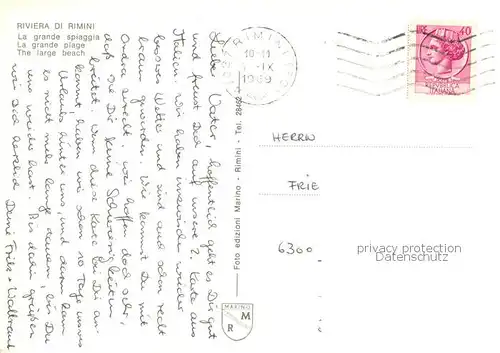 RIVIERA DI RIMINI
La grande spiaggia
La grande plage
The large beach
RIMINI
10-11
-IX
1969
40
Lieber Vater, hoffentlich geht es Dir gut
und freust Dich auf unsere Karte aus
Italien. Wir haben inzwischen wieder
besseres Wetter und sind auch schon recht
braun geworden. Wie kommst Du mit
Andrea zurecht, wir hoffen doch sehr,
daß sie Dir keine Schwierigkeiten
bereitet. Wenn diese Karte bei Dir an-
kommt haben wir schon 10 Tage unseres
Urlaubs hinter uns, und dann kann
es nicht mehr lange dauern, bis Du
uns wieder hast. Bis dahin grüßen
wir Dich herzlich Deine Fritz + Waltraut
Foto edizioni Marino - Rimini - Tel.
MARINO
M
R
HERRN
FRIE
6300
privacy protection
Datenschutz